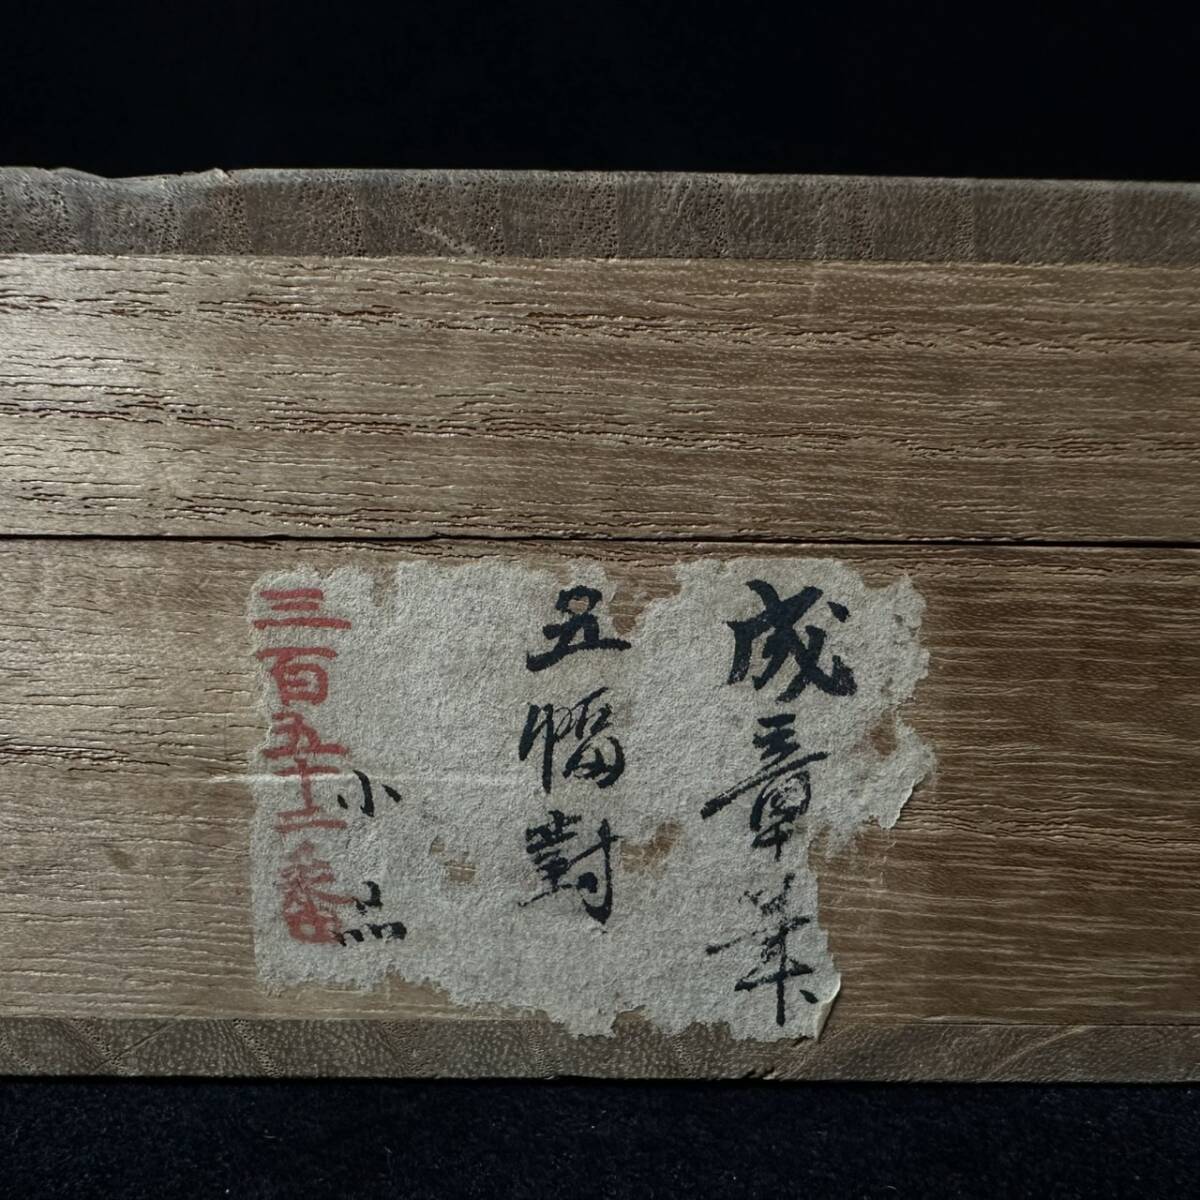 成章筆
五幅對
小品
三百五十二番